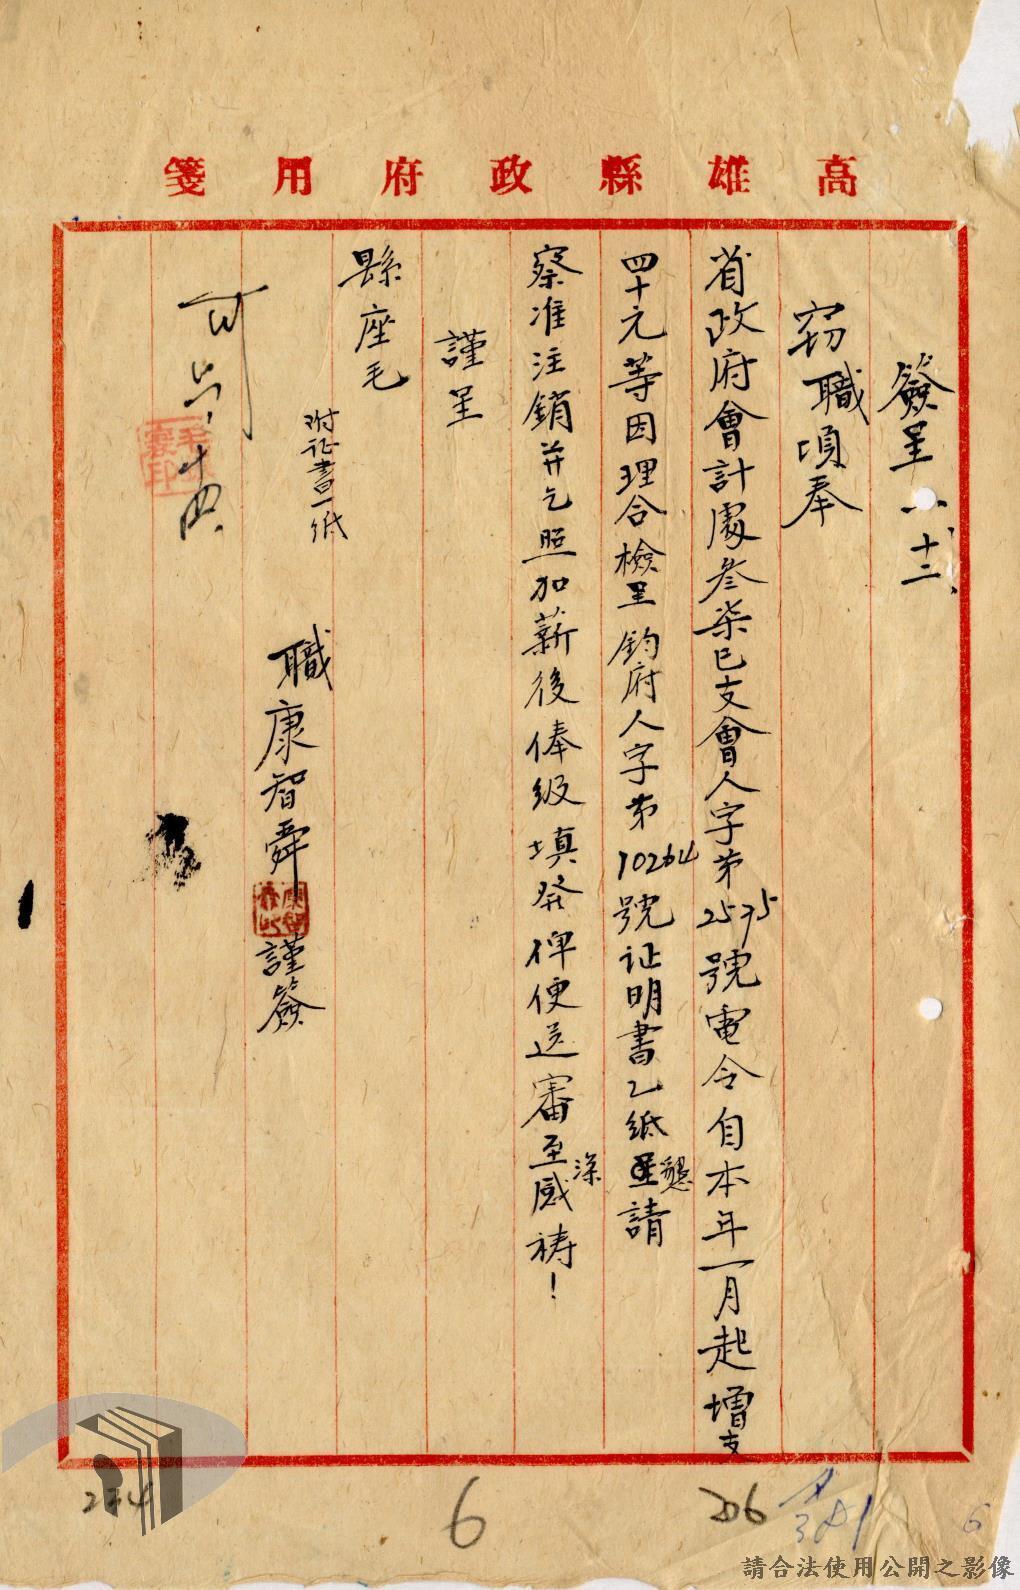 高雄縣政府用箋
簽呈 八、十二、
窃職頃奉
省政府會計處叁柒巳支會人字第2575號電令自本年一月起增支
四十元等因理合檢呈鈞府人字第10264號证明書乙紙懇請
察准注銷并乞照加薪後俸級填發俾便送審至深感祷！
謹呈
縣座毛
附证書一紙
職康智舜謹簽
可
234
6
206
381
6
請合法使用公開之影像